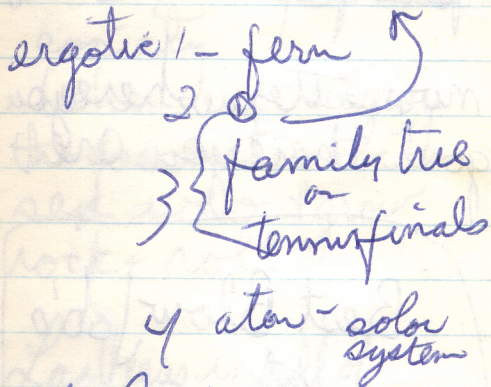 ergotic 1- fern
2 ①
3 { family tree
or
tennis finals
4 atom - solar
system